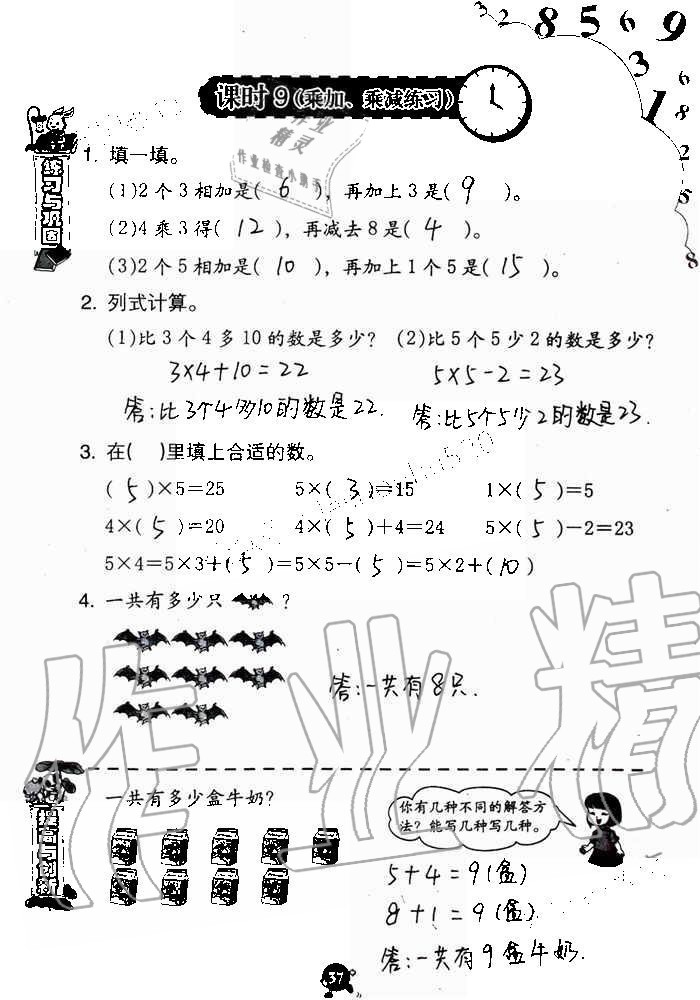 3 2 8 5 6 9
3 1 6 8 2 5 8
课时9(乘加、乘减练习)
练习与巩固
1. 填一填。
(1)2个3相加是( 6 ),再加上3是( 9 )。
(2)4乘3得( 12 ),再减去8是( 4 )。
(3)2个5相加是( 10 ),再加上1个5是( 15 )。
2. 列式计算。
(1)比3个4多10的数是多少? (2)比5个5少2的数是多少?
3×4+10=22 5×5-2=23
答:比3个4多10的数是22. 答:比5个5少2的数是23.
3. 在( )里填上合适的数。
( 5 )×5=25 5×( 3 )=15 1×( 5 )=5
4×( 5 )=20 4×( 5 )+4=24 5×( 5 )-2=23
5×4=5×3+( 5 )=5×5-( 5 )=5×2+( 10 )
4. 一共有多少只 ?
答:一共有8只.
作业精
提高与创新
一共有多少盒牛奶?
你有几种不同的解答方
法?能写几种写几种。
5+4=9(盒)
8+1=9(盒)
答:一共有9盒牛奶.
37